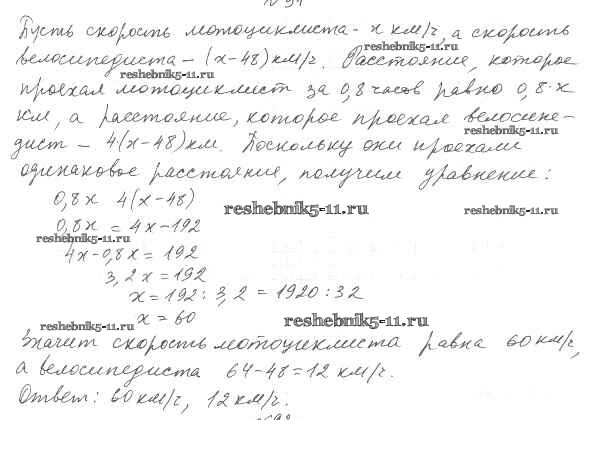 Пусть скорость мотоциклиста - х км/г, а скорость
reshebnik5-11.ru
велосипедиста - (х-48) км/г. Расстояние, которое
reshebnik5-11.ru
проехал мотоциклист за 0,8 часов равно 0,8·х
км, а расстояние, которое проехал велосипе-
reshebnik5-11.ru
дист - 4(х-48) км. Поскольку они проехали
одинаковое расстояние, получим уравнение:
0,8х 4(х-48)
reshebnik5-11.ru
reshebnik5-11.ru
0,8х = 4х-192
reshebnik5-11.ru
4х-0,8х = 192
3,2х = 192
х = 192 : 3,2 = 1920 : 32
х = 60
reshebnik5-11.ru
reshebnik5-11.ru
Значит скорость мотоциклиста равна 60 км/г,
а велосипедиста 64-48=12 км/г.
Ответ: 60 км/г, 12 км/г.